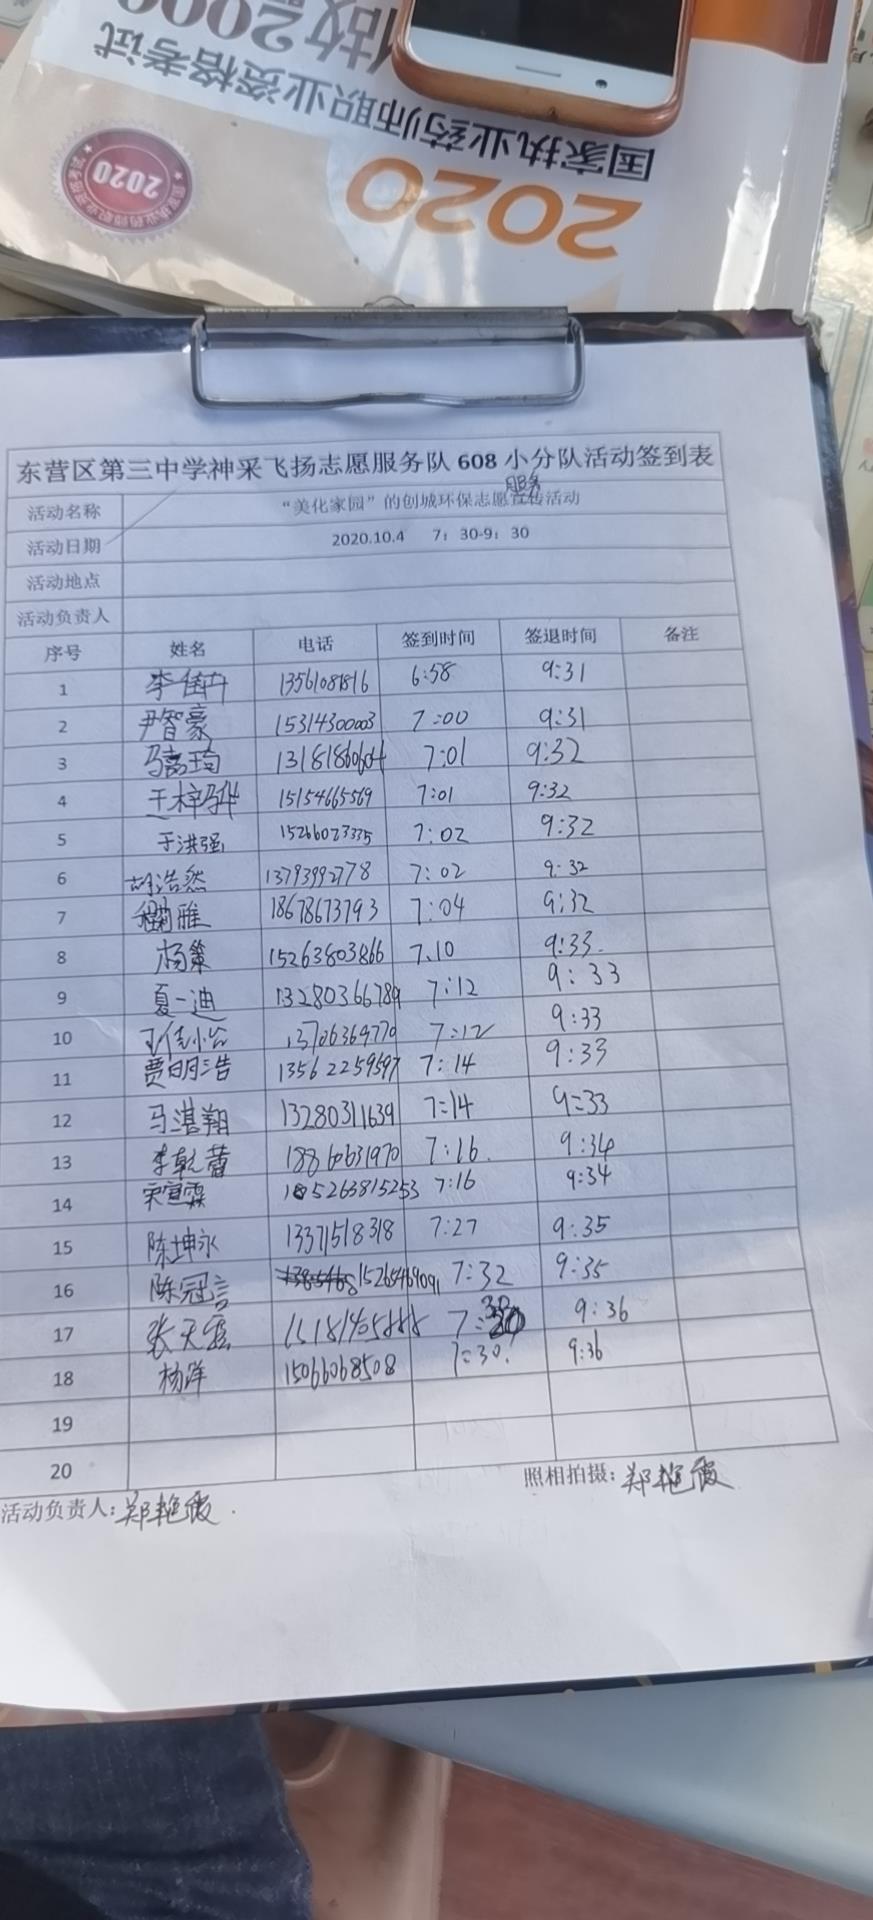 做
2000
题
国家执业药师职业资格考试
2020
2020
国家执业药师职业资格考试
东营区第三中学神采飞扬志愿服务队 608 小分队活动签到表
活动名称 “美化家园”的创城环保志愿服务宣传活动
活动日期 2020.10.4 7：30-9：30
活动地点
活动负责人
序号 姓名 电话 签到时间 签退时间 备注
1 李佳冉 13561081816 6:58 9:31
2 尹智豪 15314300003 7:00 9:31
3 马嘉琦 13181860604 7:01 9:32
4 王梓骅 15154665569 7:01 9:32
5 于洪强 15266023335 7:02 9:32
6 胡浩然 13793992778 7:02 9:32
7 雅 18678673793 7:04 9:32
8 杨策 15263803866 7.10 9:33.
9 夏一迪 13280366789 7:12 9:33
10 13706369770 7:12 9:33
11 贾明浩 13562259597 7:14 9:33
12 马淇翔 13280311639 7:14 9:33
13 李乾蕾 18860631970 7:16. 9:34
14 宋宣霖 15263815253 7:16 9:34
15 陈坤永 13371518318 7:27 9:35
16 陈冠言 15265469091 7:32 9:35
17 张天 7:30 9:36
18 杨洋 15066068508 7:30. 9:36
19
20
活动负责人：郑艳霞.
照相拍摄：郑艳霞